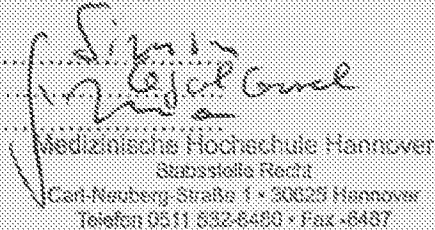 Legal Counsel
Medizinische Hochschule Hannover
Stabsstelle Recht
Carl-Neuberg-Straße 1 • 30625 Hannover
Telefon 0511 532-6480 • Fax -6487